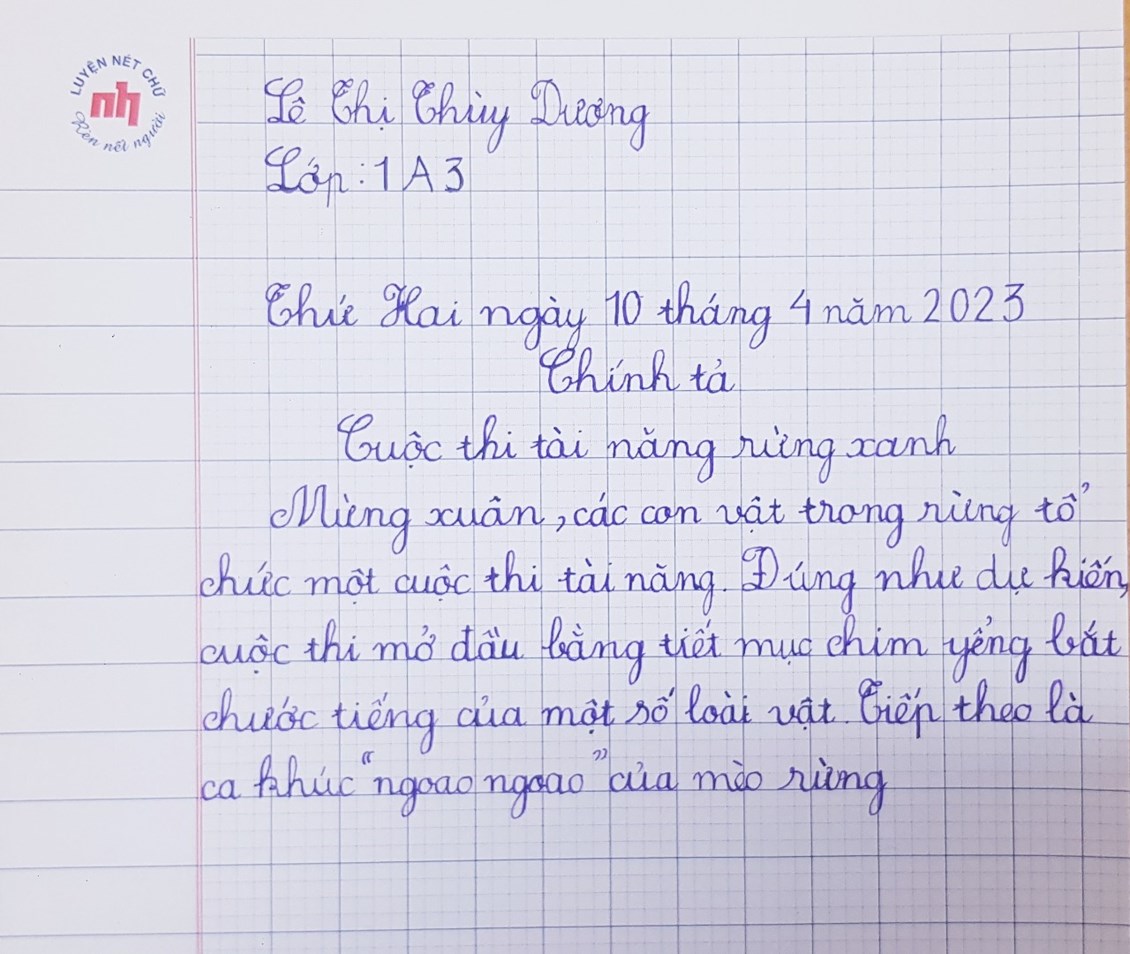 LUYỆN NÉT CHỮ
nh
Rèn nết người
Lê Thị Thùy Dương
Lớp: 1A3
Thứ Hai ngày 10 tháng 4 năm 2023
Chính tả
Cuộc thi tài năng rừng xanh
Mừng xuân, các con vật trong rừng tổ
chức một cuộc thi tài năng. Đúng như dự kiến,
cuộc thi mở đầu bằng tiết mục chim yểng bắt
chước tiếng của một số loài vật. Tiếp theo là
ca khúc "ngoao ngoao" của mèo rừng